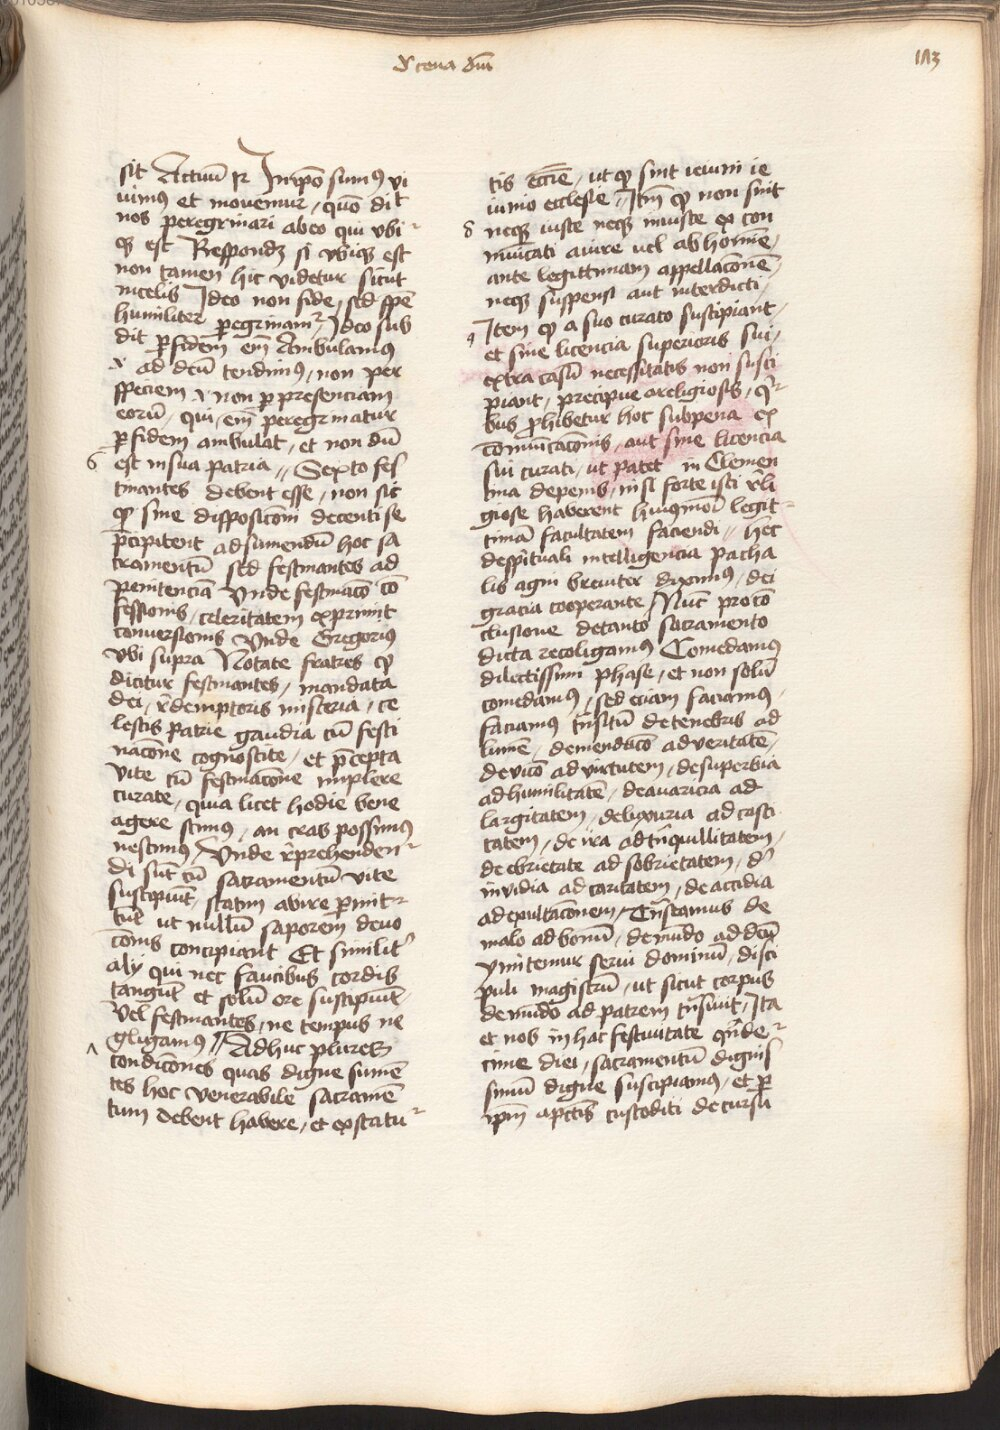 De cena dni
113
sit Actuū 17 In ipō sumꝯ vi
uimꝯ et mouemur, quō dic̄
nos peregrinari abeo qui vbi
qꝫ est Respondꝫ si vbiqꝫ est
non tamen hic videtur sicut
in celis Ideo non fide, sed spē
humiliter peregrinamᷣ, Ideo sub
dit ꝑ fidem em̄ Ambulamꝯ
ad deū tendimꝯ, non per
speciem non ꝑ presenciam
eorū, qui em̄ peregrinatur
ꝑ fidem ambulat, et non dū
6 est in sua patria, Sexto fes
tinantes debent esse, non sic
ꝙ sine disposicōni decenti se
p̄cipitent ad sumendū hoc sa
cramentū sed festinantes ad
penitenciā vnde festinacō cō
fessionis, celeritatem exprimit
conuersionis vnde Gregoriꝯ
vbi supra Notate fratres ꝙ
dicitur festinantes, mandata
dei, rᷣdemptoris misteria, ce
lestis patrie gaudia cū festi
nacōne cognoscite, et p̄cepta
vite cū festinacōne implere
curate, quia licet hodie bene
agere scimꝯ, an cras possimꝯ
nescimꝯ, Vnde rᷣprehenden
di sūt cū sacramentū vite
suscipiūt, statim abire ꝑmit
tūt ut nullū saporem deuo
cōnis concipiant Et similitᷣ
alij qui nec faucibus cordis
tangūt et solū ore suscipiūt
Vel festinantes, ne tempus ne
gligamꝯ Adhuc plures
condicōnes quas digne sumē
tes hoc venerabile sacramē
tum debent habere, et ex statu
tis ecc̄ie, ut ꝙ sint ieiuni ie
iunio ecclesie, Itm̄ ꝙ non sint
8 neqꝫ iuste neqꝫ iniuste ex con
municati a iure uel ab homīe,
ante legittimam appellacōnē,
neqꝫ suspensi aut interdicti,
9 Item ꝙ a suo curato suscipiant,
et sine licencia superioris sui,
extra casū necessitatis non susci
piant, precipue a religiosis, qᷣ
bus ꝓhibetur hoc sub pena ex
cōmunicacōnis, aut sine licencia
sui curati, ut patet in Clemen
tina de penis, nisi forte isti rᷣli
giose haberent huiꝯmōi legit
timā facultatem faciendi, hec
de spirituali intelligencia pascha
lis agni breuiter diximꝯ, dei
gracia cooperante, Nūc pro cō
clusione de tanto sacramento
dicta recoligamꝯ Comedamꝯ
dilectissimi phase, et non solū
comedamꝯ, sed eciam faciamꝯ,
faciamus trᷓnsitū de tenebris ad
lumē, de mendacō ad veritatē,
de vicō ad virtutem, de superbia
ad humilitatē, de auaricia ad
largitatem, de luxuria ad casti
tatem, de ira ad trᷓnquillitatem,
de ebrietate ad sobrietatem, dᷣ
inuidia ad caritatem, de accidia
ad exultacōnem, Trᷓnseamus de
malo ad bonū, de mūdo ad deū
ymitemur serui dominū, disci
puli magistrū, ut sicut corpus
de mūdo ad patrem trᷓnsiuit, Ita
et nos in hac festiuitate
cime diei, sacramentū dignis
simū digne suscipiamꝯ, et ꝑ
ip̄m custoditi de cursu